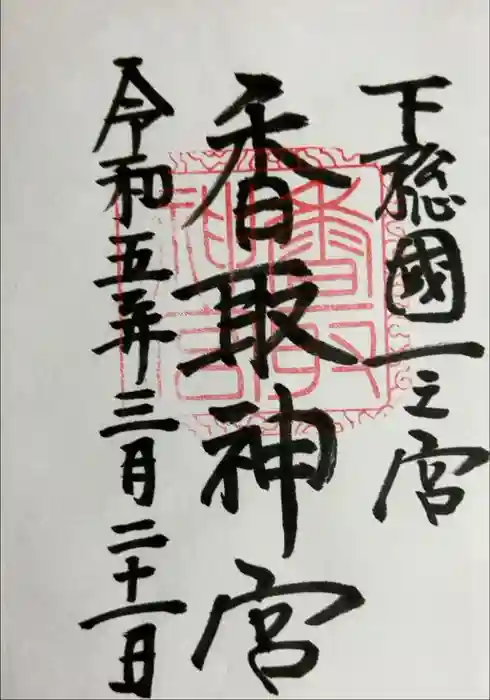 下総國一之宮
香取神宮
令和五年三月二十一日
香取
神宮